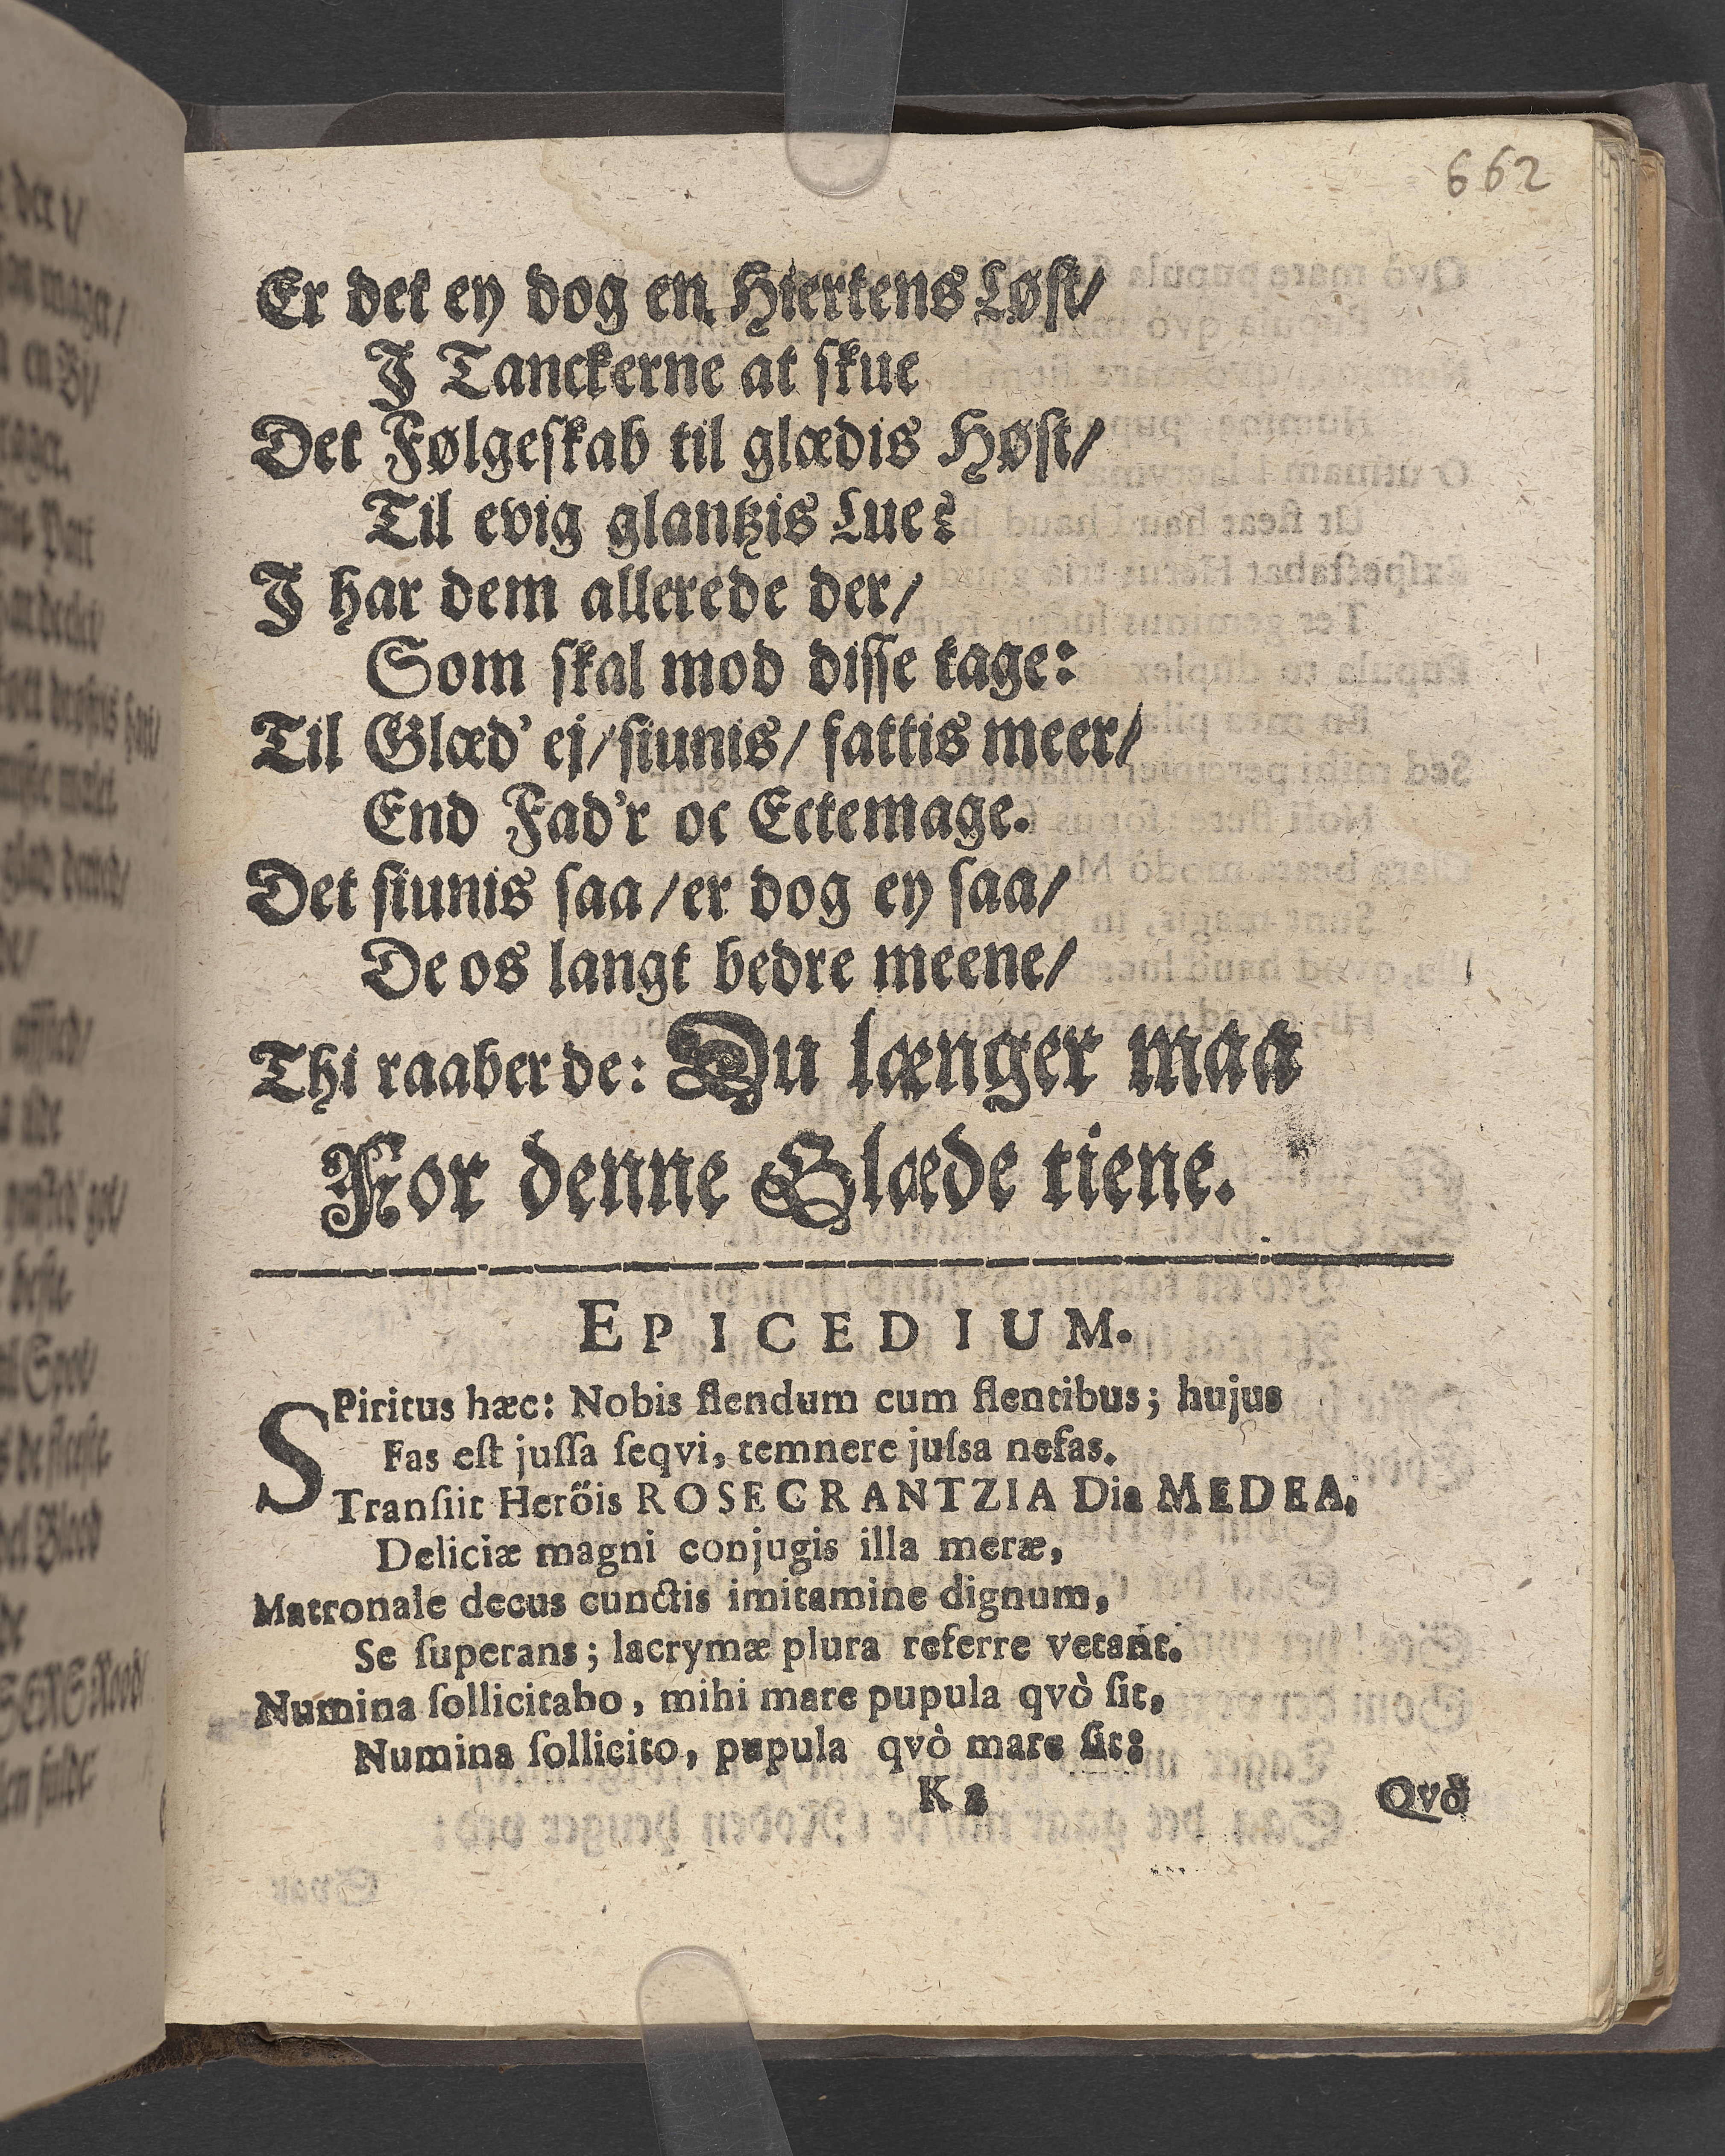 662
Er det ey dog en Hiertens Løst/
J Tanckerne at skue
Det Følgeskab til glædis Høst/
Til evig glantzis Lue?
J har dem allerede der/
Som skal mod disse tage:
Til Glæd' ej/siunis/ fattis meer/
End Fad'r oc Ectemage.
Det siunis saa/er dog ey saa/
De os langt bedre meene/
Thi raaber de: Du længer maa
For denne Glæde tiene.
EPICEDIUM.
SPiritus hæc: Nobis flendum cum flentibus; hujus
Fas eſt juſſa ſeqvi, temnere juſsa nefas.
Tranſiit Heröis ROSECRANTZIA Dia MEDEA,
Deliciæ magni conjugis illa meræ,
Matronale decus cunctis imitamine dignum,
Se ſuperans; lacrymæ plura referre vetant.
Numina ſollicitabo, mihi mare pupula qvò ſit,
Numina ſollicito, pupula qvò mare ſit:
K 2
Qvò